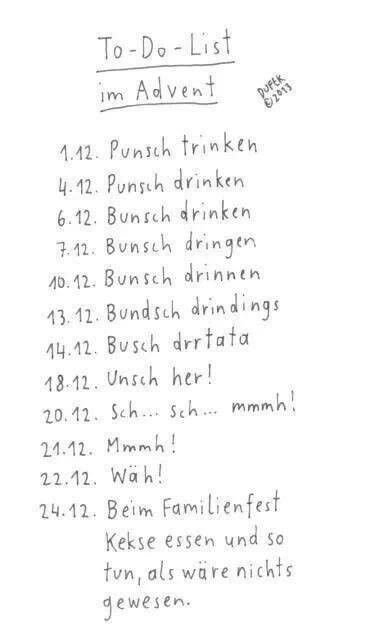 To-Do-List
im Advent
DUFEK
©2013
1.12. Punsch trinken
4.12. Punsch drinken
6.12. Bunsch drinken
7.12. Bunsch dringen
10.12. Bunsch drinnen
13.12. Bundsch drindings
14.12. Busch drrtata
18.12. Unsch her!
20.12. Sch... sch... mmmh!
21.12. Mmmh!
22.12. Wäh!
24.12. Beim Familienfest
Kekse essen und so
tun, als wäre nichts
gewesen.